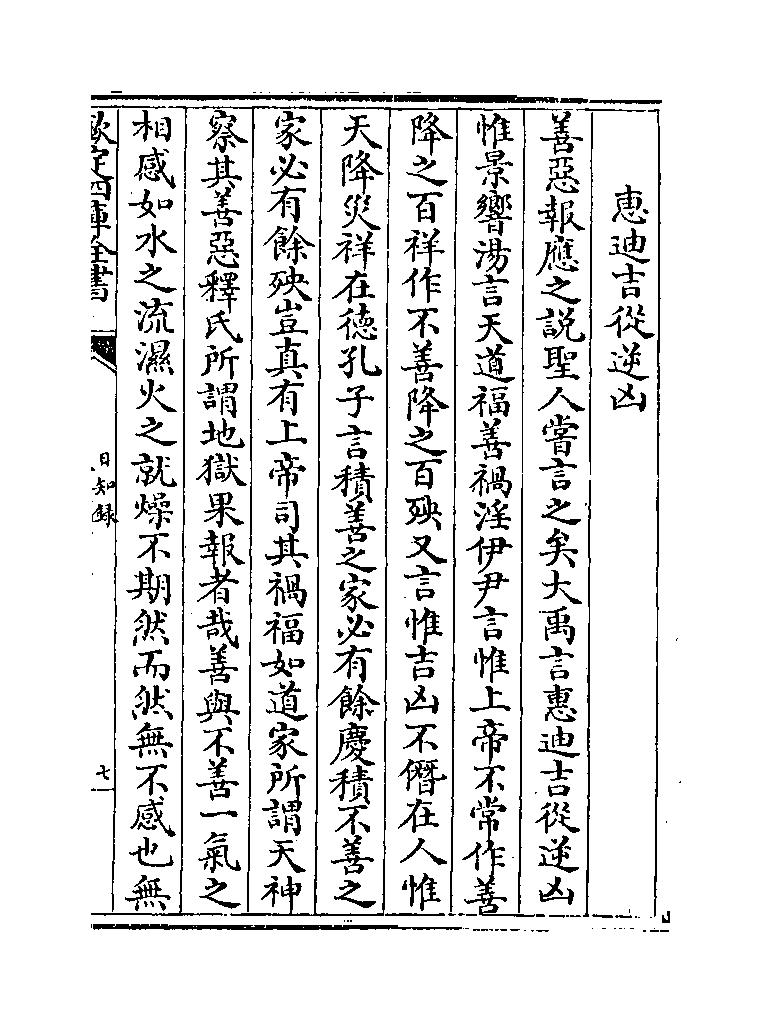 惠迪吉從逆凶
善惡報應之説聖人嘗言之矣大禹言惠迪吉從逆凶
惟景響湯言天道福善禍淫伊尹言惟上帝不常作善
降之百祥作不善降之百殃又言惟吉凶不僭在人惟
天降災祥在德孔子言積善之家必有餘慶積不善之
家必有餘殃豈真有上帝司其禍福如道家所謂天神
察其善惡釋氏所謂地獄果報者哉善與不善一氣之
相感如水之流濕火之就燥不期然而然無不感也無
欽定四庫全書
日知録
七